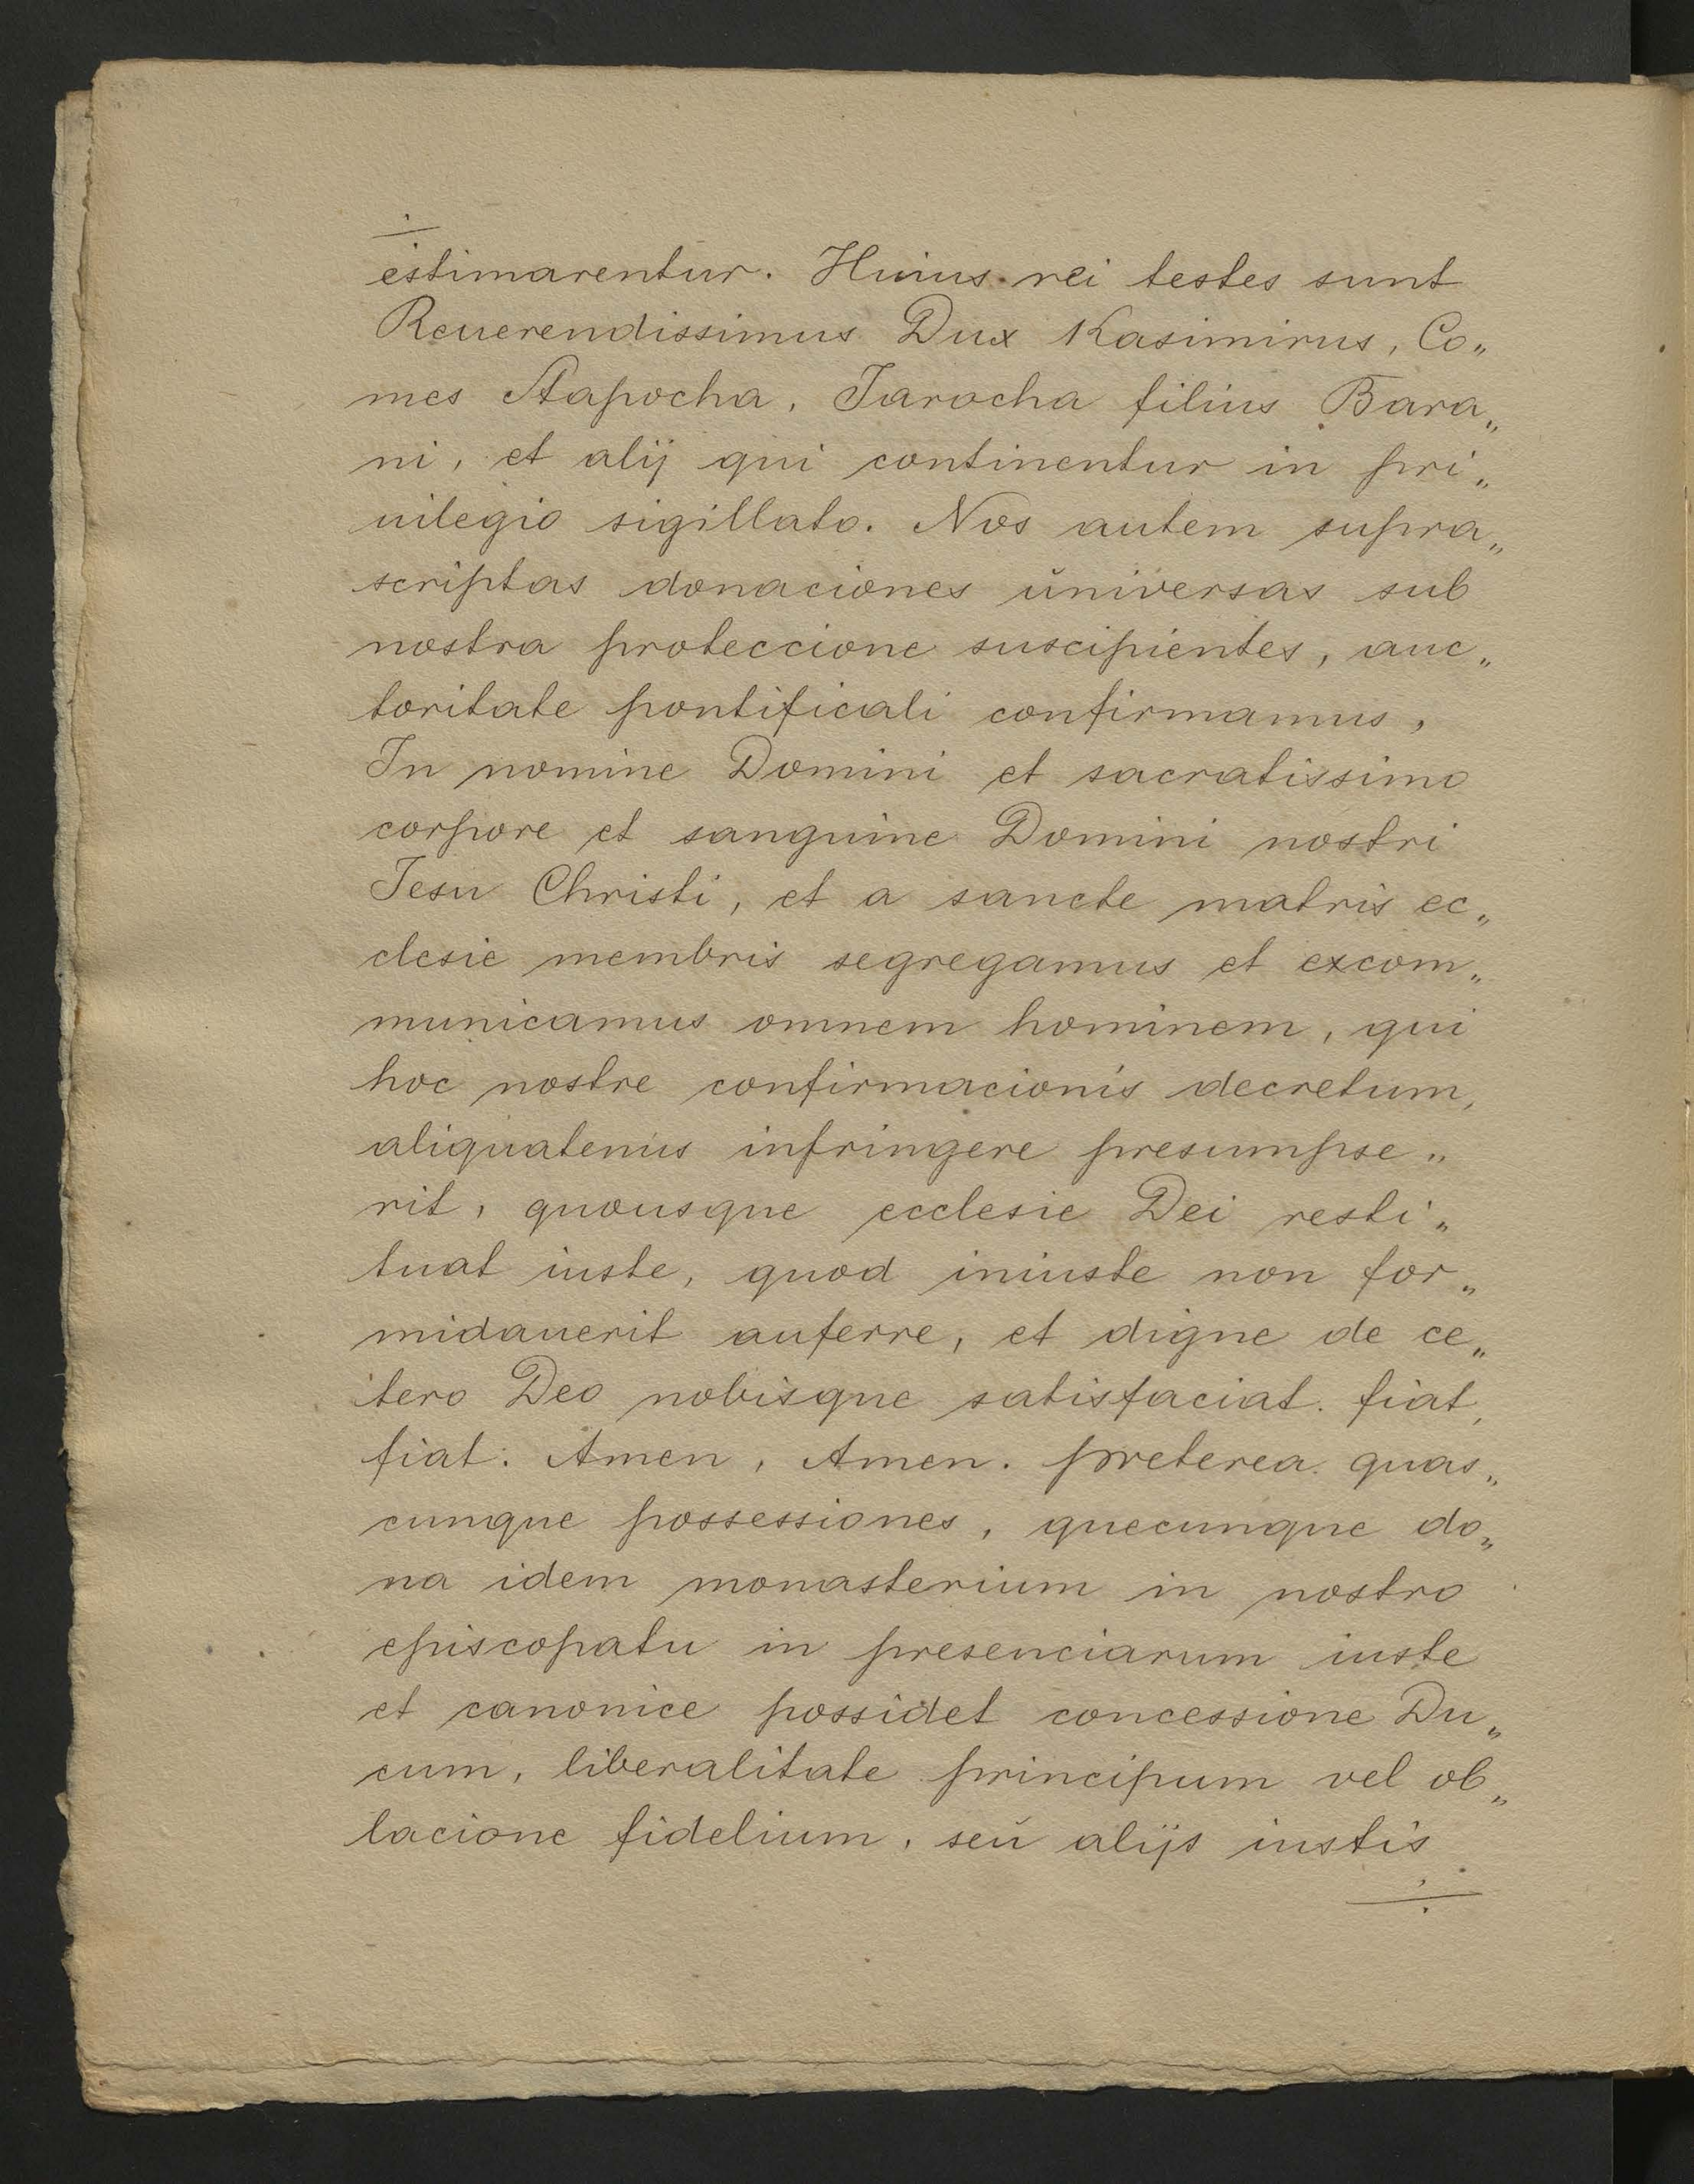 estimarentur. Huius rei testes sunt
Reuerendissimus Dux Kasimirus, Co„
mes Stapocha, Jarocha filius Bara„
ni, et alij qui continentur in pri„
uilegio sigillato. Nos autem supra„
scriptas donaciones ŭniversas sub
nostra proteccione suscipientes, auc„
toritate pontificali confirmamus,
In nomine Domini et sacratissimo
corpore et sanguine Domini nostri
Jesu Christi, et a sancte matris ec„
clesie membris segregamus et excom„
municamus omnem hominem, qui
hoc nostre confirmacionis decretum,
aliquatenus infringere presumpse„
rit, quousque ecclesie Dei resti„
tuat iuste, quod iniuste non for„
midauerit auferre, et digne de ce„
tero Deo nobisque satisfaciat. fiat,
fiat. Amen, Amen. preterea quas„
cunque possessiones, quecunque do„
na idem monasterium in nostro
episcopatu in presenciarum iuste
et canonice possidet concessione Du„
cum, liberalitate principum vel ob„
lacione fidelium, seŭ alijs iustis